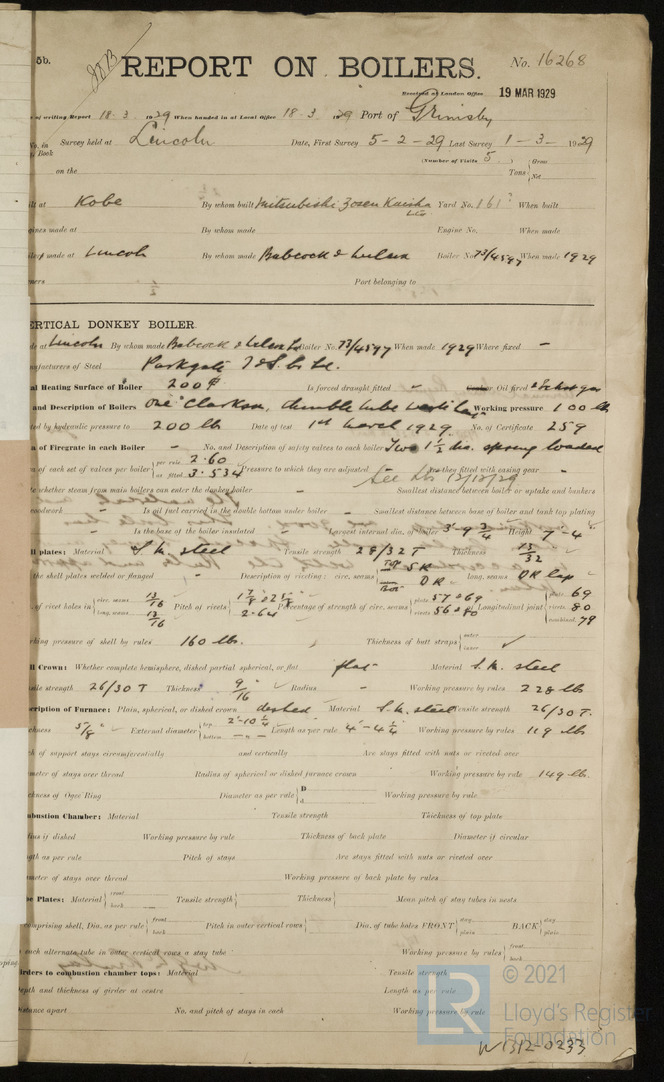 5b.
REPORT ON BOILERS.
No. 16268
Received at London Office 19 MAR 1929
of writing Report 18 . 3 . 1929 When handed in at Local Office 18 . 3 . 1929 Port of Grimsby
No. in Survey held at Lincoln Date, First Survey 5 - 2 - 29 Last Survey 1 - 3 - 1929
Book
(Number of Visits 5 )
on the Tons { Gross Net
ilt at Kobe By whom built Mitsubishi Zosen Kaisha Ltd Yard No. 161 When built
gines made at By whom made Engine No. When made
made at Lincoln By whom made Babcock & Wilcox Boiler No. 73/4597 When made 1929
ners Port belonging to
ERTICAL DONKEY BOILER.
de at Lincoln By whom made Babcock & Wilcox Ld Boiler No. 73/4597 When made 1929 Where fixed -
nufacturers of Steel Parkgate I & S. Co Ld.
al Heating Surface of Boiler 200 Is forced draught fitted - Oil fired
and Description of Boilers One "Clarkson, thimble tube vertical Working pressure 100 lb
ted by hydraulic pressure to 200 lb Date of test 1st March 1929. No. of Certificate 259
of Firegrate in each Boiler - No. and Description of safety valves to each boiler Two 1½" dia. spring loaded
of each set of valves per boiler { per rule 2.60 as fitted 3.534 Pressure to which they are adjusted - Are they fitted with easing gear -
te whether steam from main boilers can enter the donkey boiler - See 12/12/29 Smallest distance between boiler or uptake and bunkers
woodwork - Is oil fuel carried in the double bottom under boiler - Smallest distance between base of boiler and tank top plating
Is the base of the boiler insulated - Largest internal dia. of boiler 3'-9¾" Height 7'-4"
ll plates: Material S.M. steel Tensile strength 28/32 T Thickness 13/32
the shell plates welded or flanged - Description of riveting: circ. seams { TOP SR BOT DR long. seams DR lap
of rivet holes in { circ. seams 13/16 long. seams 13/16 Pitch of rivets { 2.64 Percentage of strength of circ. seams { plate 57 & 69 rivets 56 & 80 of Longitudinal joint { plate 69 rivets 80 combined 79
rking pressure of shell by rules 160 lb. Thickness of butt straps { outer inner
ll Crown: Whether complete hemisphere, dished partial spherical, or flat flat Material S.M. steel
sile strength 26/30 T Thickness 9/16" Radius - Working pressure by rules 228 lb
cription of Furnace: Plain, spherical, or dished crown dished Material S.M. steel Tensile strength 26/30 T.
ckness 5/8" External diameter { top 2'-10¼" bottom - " - Length as per rule 4'-4¼" Working pressure by rules 119 lb
ch of support stays circumferentially and vertically Are stays fitted with nuts or riveted over
meter of stays over thread Radius of spherical or dished furnace crown Working pressure by rule 149 lb.
ckness of Ogee Ring Diameter as per rule { D d Working pressure by rule
mbustion Chamber: Material Tensile strength Thickness of top plate
dius if dished Working pressure by rule Thickness of back plate Diameter if circular
ngth as per rule Pitch of stays Are stays fitted with nuts or riveted over
meter of stays over thread Working pressure of back plate by rules
be Plates: Material { front back Tensile strength { Thickness { Mean pitch of stay tubes in nests
omprising shell, Dia. as per rule { front back Pitch in outer vertical rows { Dia. of tube holes FRONT { stay plain BACK { stay plain
each alternate tube in outer vertical rows a stay tube Working pressure by rules { front back
irders to combustion chamber tops: Material Tensile strength
epth and thickness of girder at centre Length as per rule
istance apart No. and pitch of stays in each Working pressure by rule
LR
© 2021
Lloyd's Register
Foundation
W1312-0233